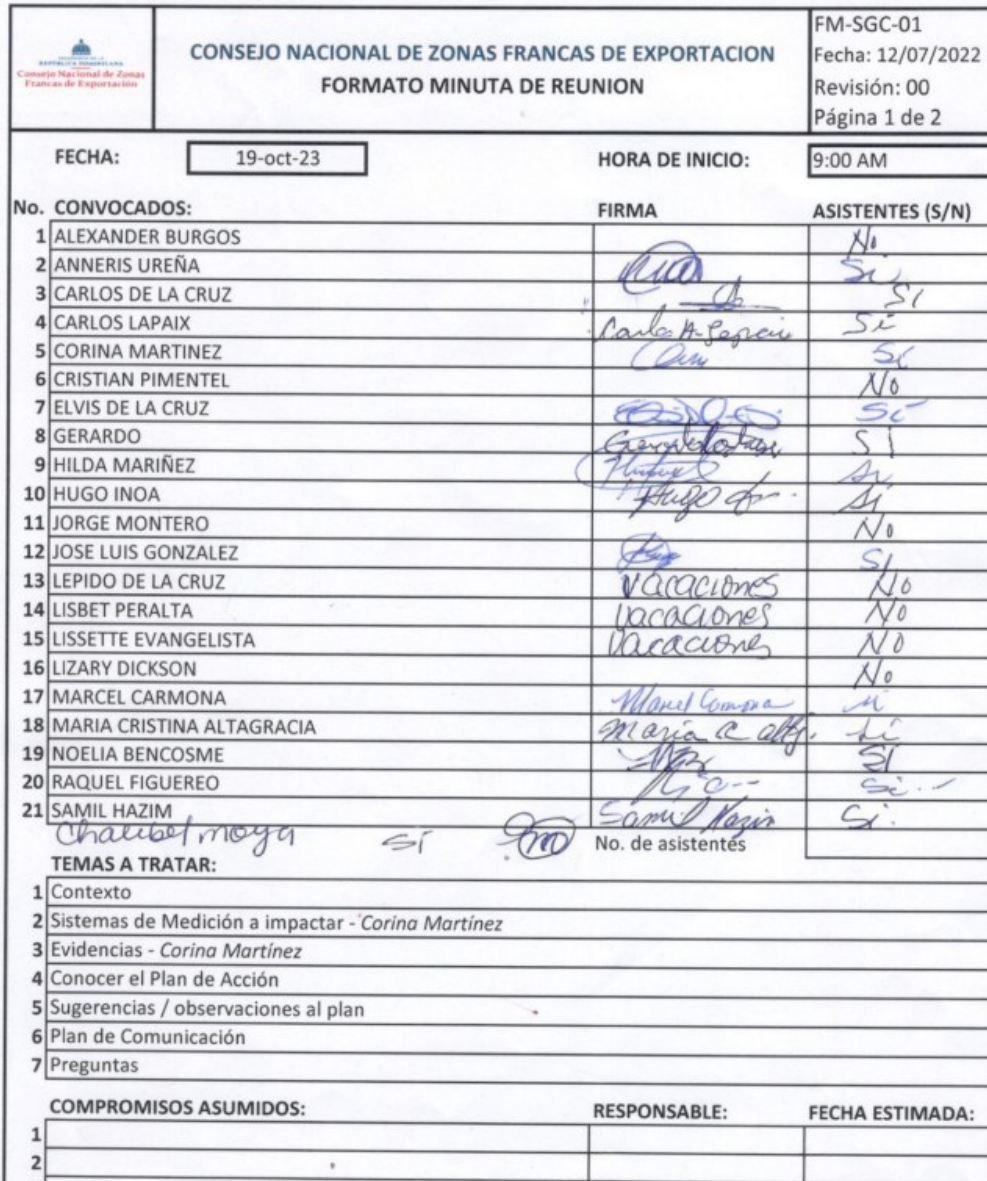 PRESIDENCIA DE LA
REPÚBLICA DOMINICANA
Consejo Nacional de Zonas
Francas de Exportación
CONSEJO NACIONAL DE ZONAS FRANCAS DE EXPORTACION
FORMATO MINUTA DE REUNION
FM-SGC-01
Fecha: 12/07/2022
Revisión: 00
Página 1 de 2
FECHA: 19-oct-23 HORA DE INICIO: 9:00 AM
No. CONVOCADOS: FIRMA ASISTENTES (S/N)
1 ALEXANDER BURGOS No
2 ANNERIS UREÑA Si
3 CARLOS DE LA CRUZ Si
4 CARLOS LAPAIX Carlos A. Si
5 CORINA MARTINEZ Si
6 CRISTIAN PIMENTEL No
7 ELVIS DE LA CRUZ Si
8 GERARDO SI
9 HILDA MARIÑEZ Si
10 HUGO INOA Hugo Si
11 JORGE MONTERO No
12 JOSE LUIS GONZALEZ SI
13 LEPIDO DE LA CRUZ Vacaciones No
14 LISBET PERALTA Vacaciones No
15 LISSETTE EVANGELISTA Vacaciones No
16 LIZARY DICKSON No
17 MARCEL CARMONA Marcel Carmona Si
18 MARIA CRISTINA ALTAGRACIA Maria C altg. Si
19 NOELIA BENCOSME SI
20 RAQUEL FIGUEREO Si
21 SAMIL HAZIM Samil Hazim Si.
moya Sí No. de asistentes
TEMAS A TRATAR:
1 Contexto
2 Sistemas de Medición a impactar - Corina Martínez
3 Evidencias - Corina Martínez
4 Conocer el Plan de Acción
5 Sugerencias / observaciones al plan
6 Plan de Comunicación
7 Preguntas
COMPROMISOS ASUMIDOS: RESPONSABLE: FECHA ESTIMADA:
1
2